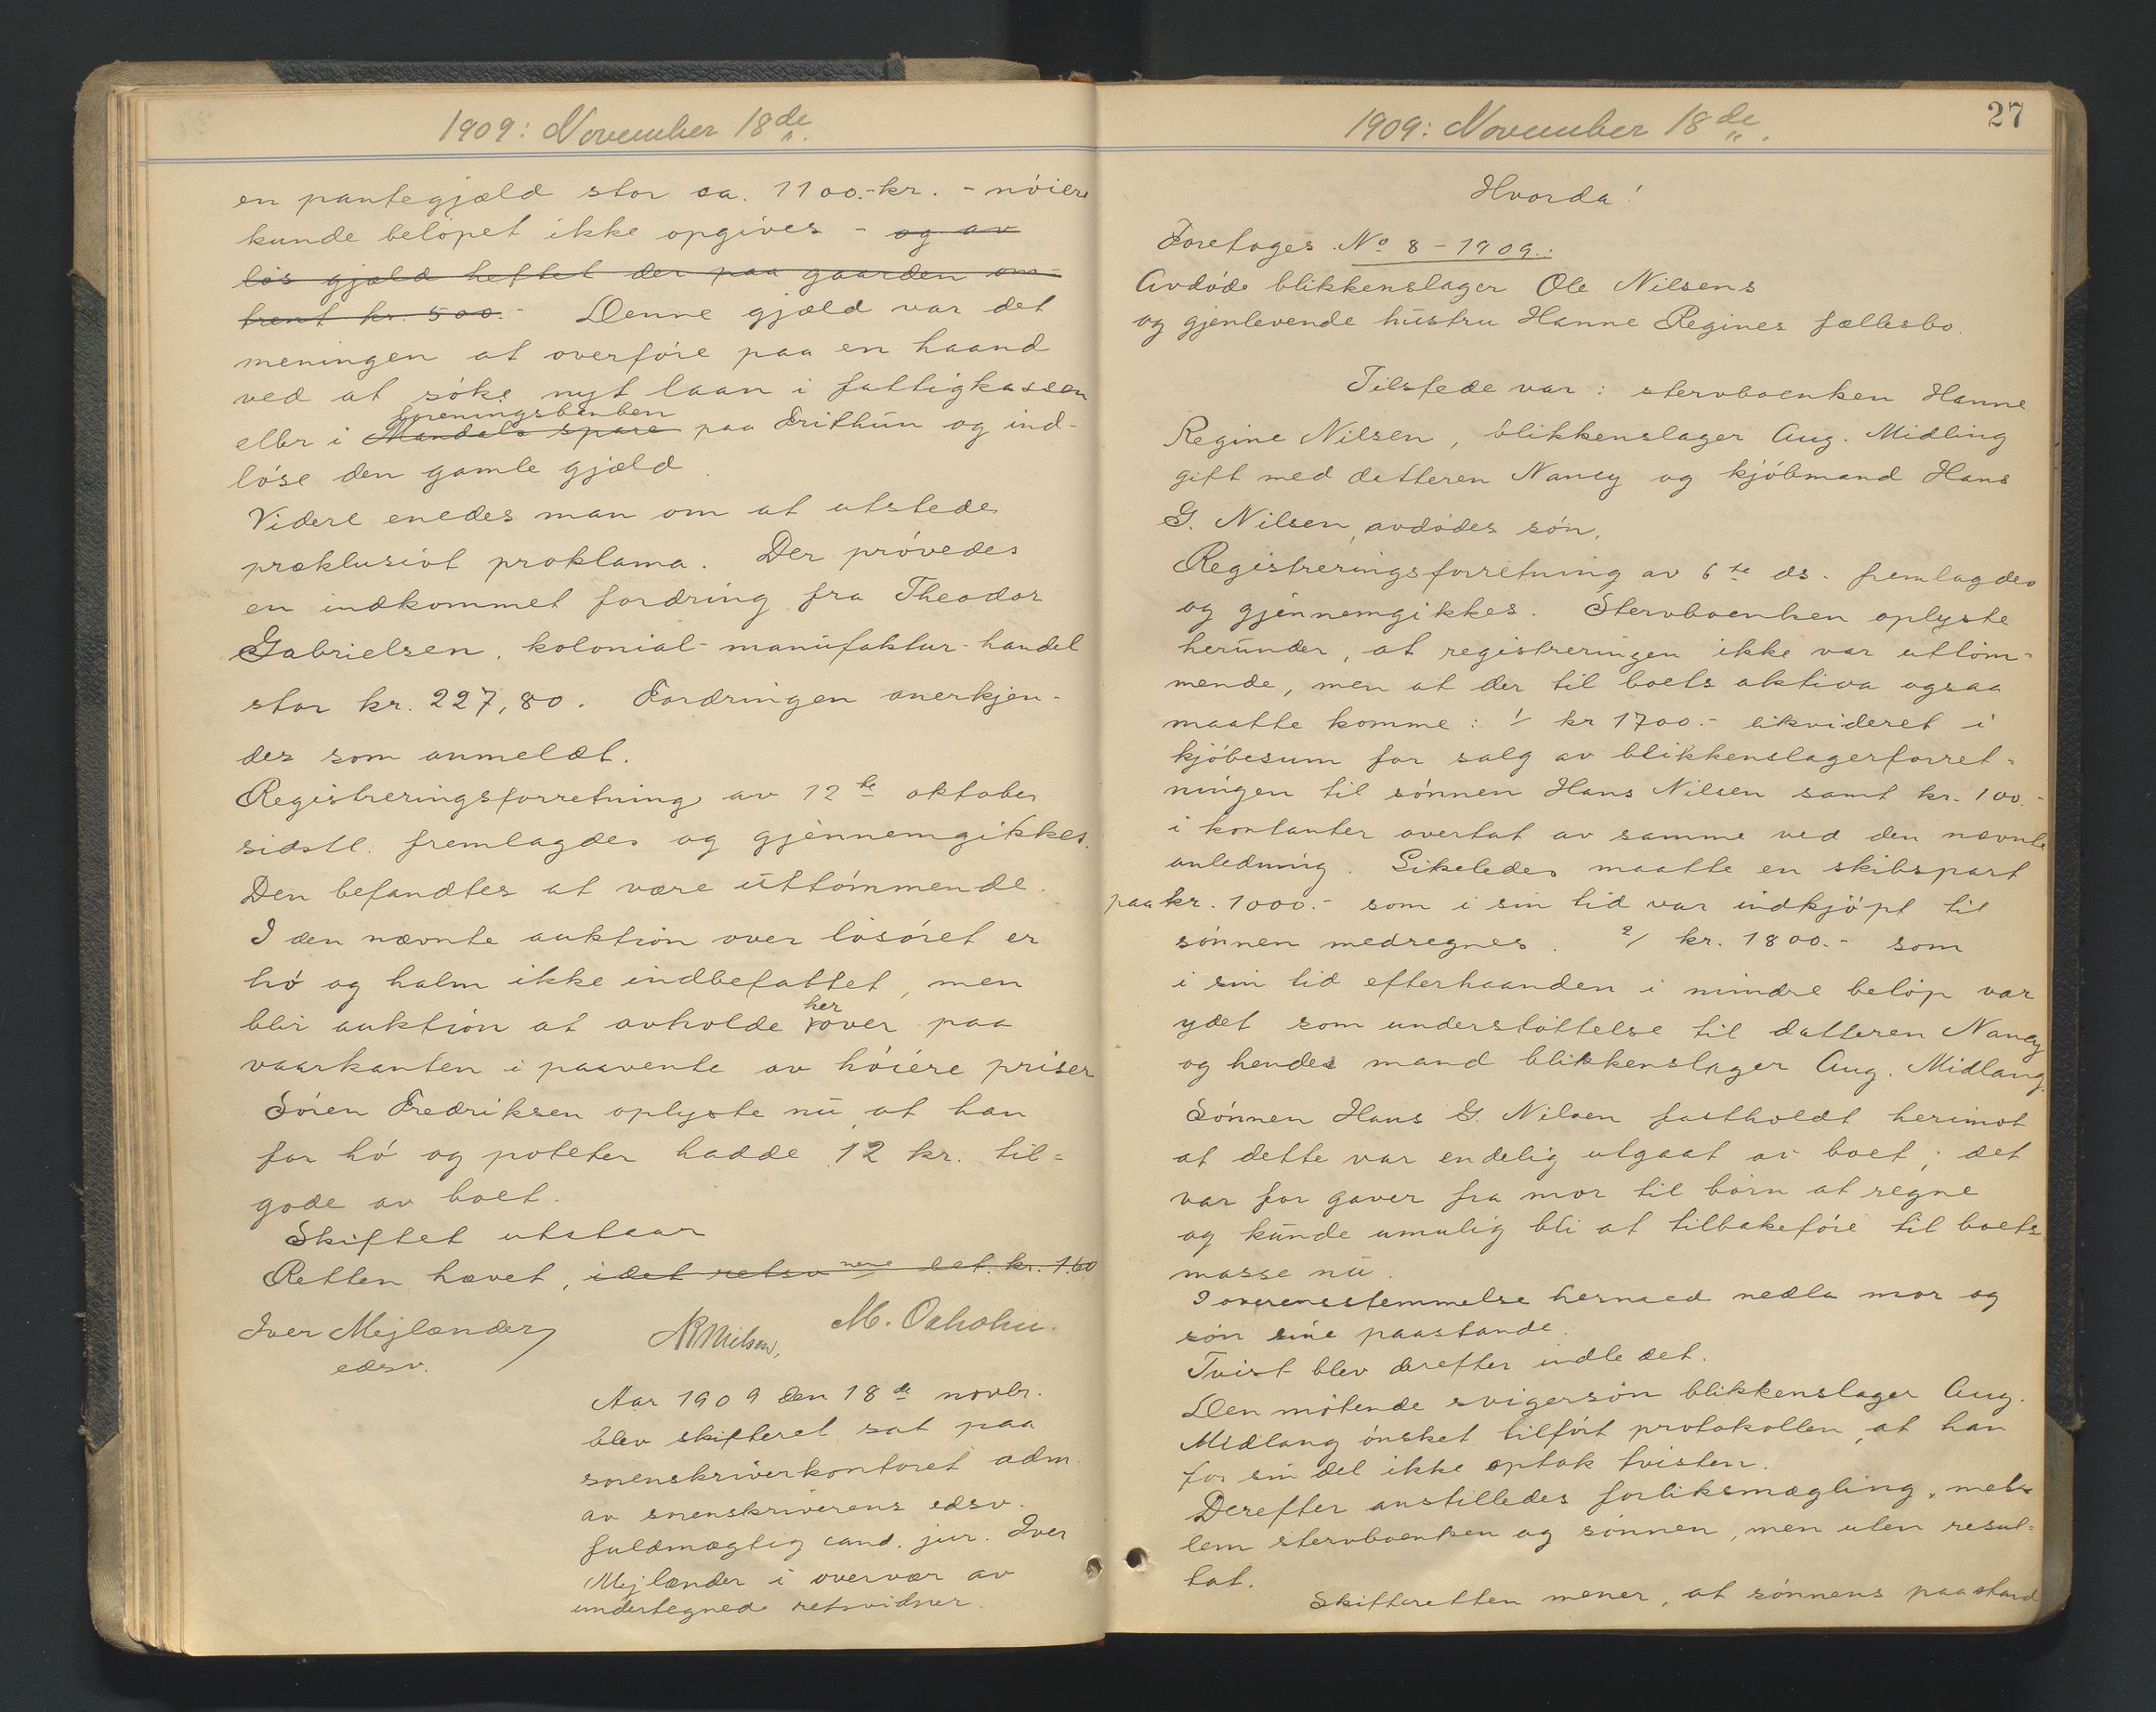 1909: November 18de
en pantegjæld stor ca. 1100.- kr. - nóiere
kunde belöpet ikke opgives - og av
lös gjæld heftet der paa gaarden om-
trent kr. 500.- Denne gjæld var det
meningen at overføre paa en haand
ved at söke nyt laan i fattigkassen
foreningsbanken
eller i Mandals spare paa Frithun og ind-
löse den gamle gjæld.
Videre enedes man om at utstede
præklusivt proklama. Der prövedes
en indkommet fordring fra Theodor
Gabrielsen, kolonial- manufaktur- handel
stor kr. 227,80. Fordringen anerkjen-
des som anmeldt.
Registreringsforretning av 12te oktober
sidstl. fremlagdes og gjennemgikkes.
Den befandtes at være uttömmende.
I den nævnte auktion over lösöret er
hö og halm ikke indbefattet, men
her
blir auktion at avholde over paa
vaarkanten i paavente av höiere priser
Sören Fredriksen oplyste nu, at han
for hö og poteter hadde 12 kr. til=
gode av boet.
Skiftet utstaar
Retten hævet, idet retsvnene det. kr. 1.60
Iver Mejlænder
edsv.
M. Oxholm.
Aar 1909 den 18de novbr.
blev skifteret sat paa
sorenskriverkontoret adm.
av sorenskriverens edsv.
fuldmægtig cand. jur. Iver
Mejlænder i overvær av
undertegnede retsvidner.
1909: November 18de.
27
Hvorda!
Foretages No 8 - 1909.:
Avdöde blikkenslager Ole Nilsens
og gjenlevende hustru Hanne Regines fællesbo.
Tilstede var: stervboenken Hanne
Regine Nilsen, blikkenslager Aug. Midling
gift med datteren Nancy og kjöbmand Hans
G. Nilsen, avdödes sön.
Registreringsforretning av 6te ds. fremlagdes
og gjennemgikkes. Stervboenken oplyste
herunder, at registreringen ikke var uttöm=
mende, men at der til boets aktiva ogsaa
maatte komme: 1/ kr 1700.- likvideret i
kjöbesum for salg av blikkenslagerforret=
ningen til sönnen Hans Nilsen samt kr. 100.-
i kontanter overtat av samme ved den nævnte
anledning. Likeledes maatte en skibspart
paa kr. 1000.- som i sin tid var indkjöpt til
sönnen medregnes. 2/ kr. 1800.- som
i sin tid efterhaanden i mindre belöp var
ydet som understöttelse til datteren Nancy
og hendes mand blikkenslager Aug. Midlang.
Sönnen Hans G. Nilsen fastholdt herimot
at dette var endelig utgaat av boet; det
var for gaver fra mor til börn at regne
og kunde umulig bli at tilbakeföre til boets
masse nu.
I overensstemmelse hermed nedla mor og
sön sine paastande.
Tvist blev derefter indledet.
Den mötende svigersön blikkenslager Aug.
Midlang önsket tilfört protokollen, at han
for sin del ikke optok tvisten.
Derefter anstilledes forliksmægling, mel-
lem stervboenken og sönnen, men uten resul=
tat.
Skifteretten mener, at sönnens paastand